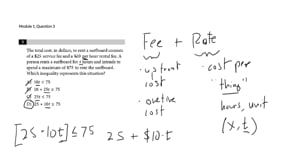 Module 1, Question 3
3
The total cost, in dollars, to rent a surfboard consists
of a $25 service fee and a $10 per hour rental fee. A
person rents a surfboard for t hours and intends to
spend a maximum of $75 to rent the surfboard.
Which inequality represents this situation?
10t ≤ 75
10 + 25t ≤ 75
25t ≤ 75
25 + 10t ≤ 75
Fee + Rate
· upfront cost
· onetime cost
· cost per "thing"
hours, unit
(x, t)
[25 + 10t] ≤ 75
25 + $10·t